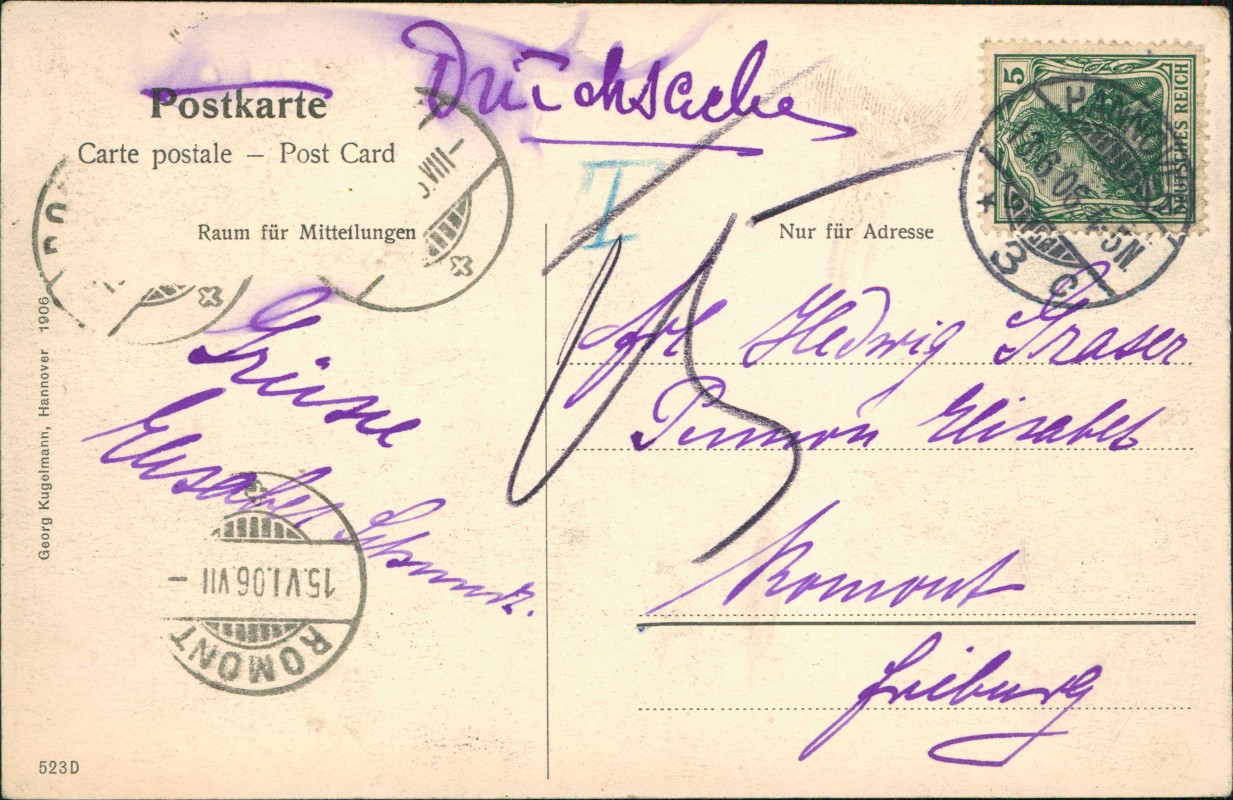 Drucksache
Postkarte
Carte postale – Post Card
Raum für Mitteilungen
Nur für Adresse
5
DEUTSCHES REICH
3 c
VIII –
T
15
Grüsse
Elisabet
Frl Hedwig Graser
Pension Elisabet
Romont
Freiburg
15.VI.06.VII –
ROMONT
Georg Kugelmann, Hannover 1906
523D